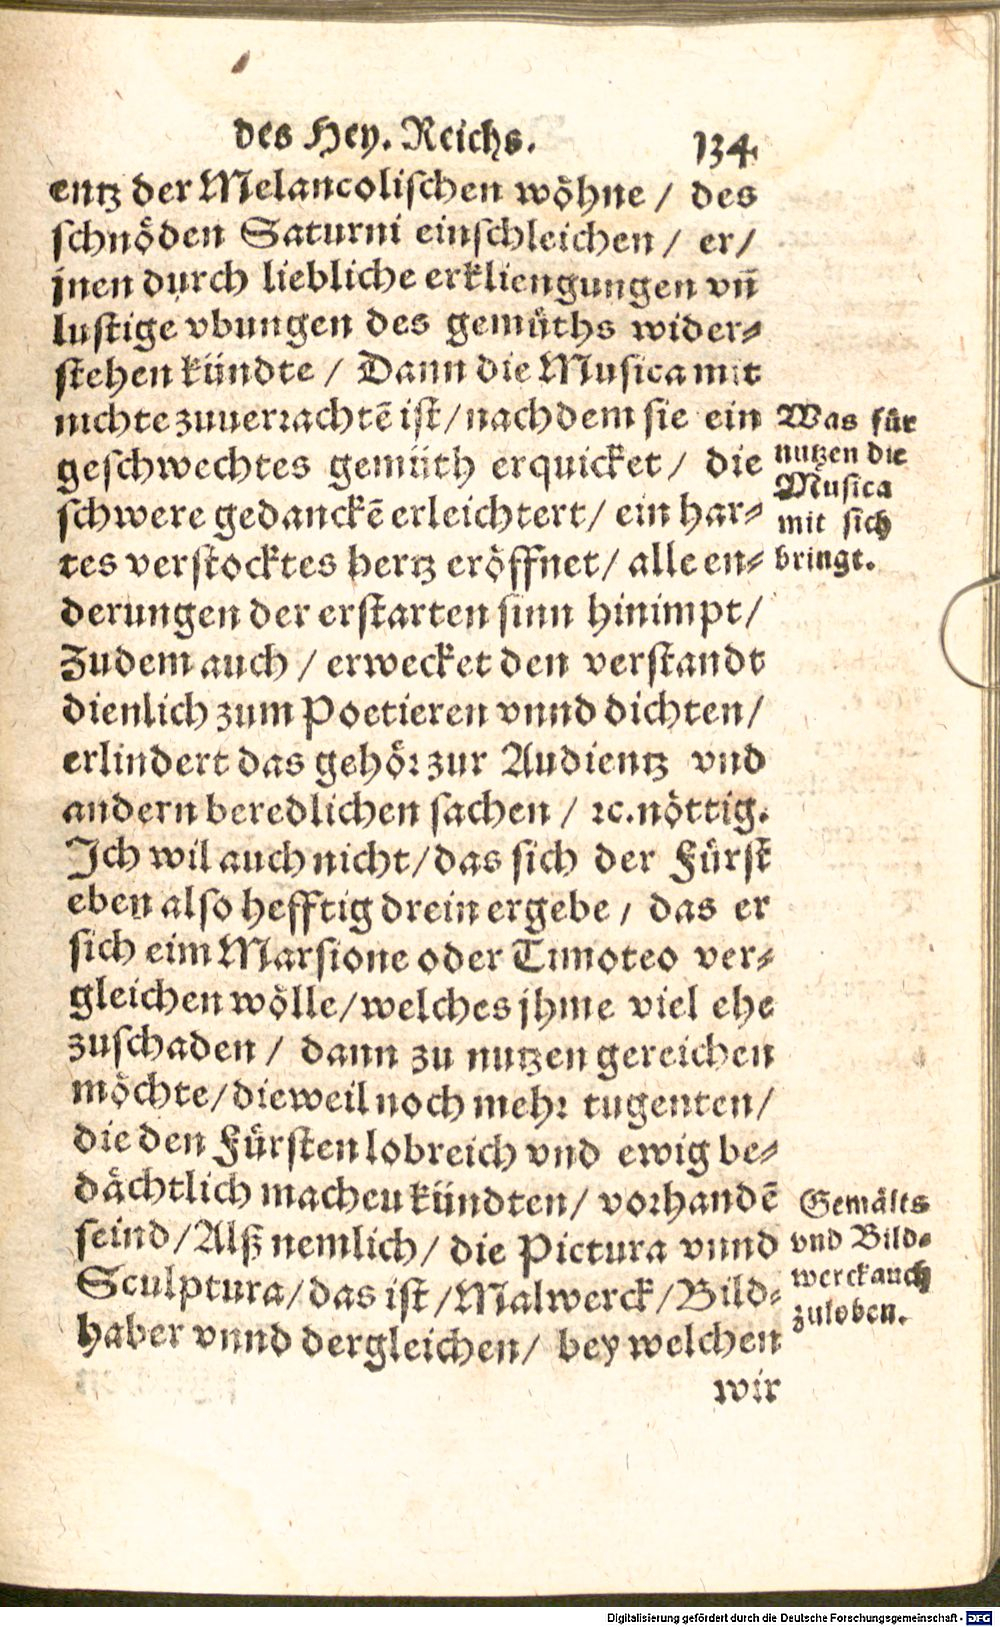 des Hey. Reichs. 134.
entz der Melancolischen wöhne / des
schnöden Saturni einschleichen / er /
jnen durch liebliche erkliengungen vñ
lustige vbungen des gemüths wider-
stehen kündte / Dann die Musica mit
nichte zuuerꝛachtẽ ist / nachdem sie ein
geschwechtes gemüth erquicket / die
schwere gedanckẽ erleichtert / ein har-
tes verstocktes hertz eröffnet / alle en-
derungen der erstarten sinn hinimpt /
Zudem auch / erwecket den verstandt
dienlich zum Poetieren vnnd dichten /
erlindert das gehöꝛ zur Audientz vnd
andern beredlichen sachen / ꝛc. nöttig.
Ich wil auch nicht / das sich der Fürst
eben also hefftig drein ergebe / das er
sich eim Marsione oder Timoteo ver-
gleichen wölle / welches jhme viel ehe
zuschaden / dann zu nutzen gereichen
möchte / dieweil noch mehꝛ tugenten /
die den Fürsten lobreich vnd ewig be-
dächtlich macheu kündten / voꝛhandẽ
seind / Alß nemlich / die Pictura vnnd
Sculptura / das ist / Malwerck / Bild-
haber vnnd dergleichen / bey welchen
wir
Was für
nutzen die
Musica
mit sich
bringt.
Gemälts
vnd Bild-
werck auch
zuloben.
Digitalisierung gefördert durch die Deutsche Forschungsgemeinschaft - DFG